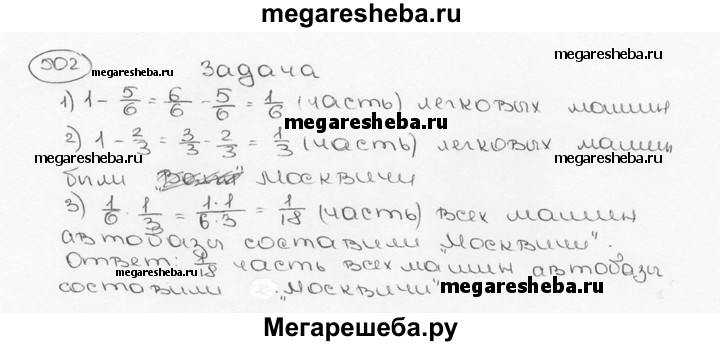 megaresheba.ru
502 megaresheba.ru Задача
1) 1 - 5/6 = 6/6 - 5/6 = 1/6 (часть) легковых машин
megaresheba.ru
2) 1 - 2/3 = 3/3 - 2/3 = 1/3 (часть) легковых машин
megaresheba.ru megaresheba.ru
были Москвичи
3) 1/6 · 1/3 = 1·1/6·3 = 1/18 (часть) всех машин
автобазы составили „Москвичи".
Ответ: 1/18 часть всех машин автобазы
megaresheba.ru
составили „Москвичи" megaresheba.ru
Мегарешеба.ру